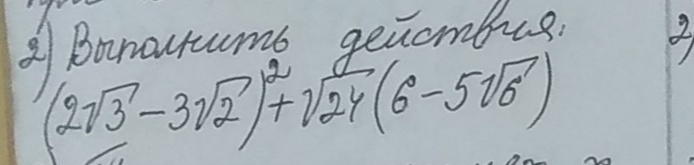 2) Выполнить действия.
(2√3 − 3√2)² + √24 (6 − 5√6)
2)